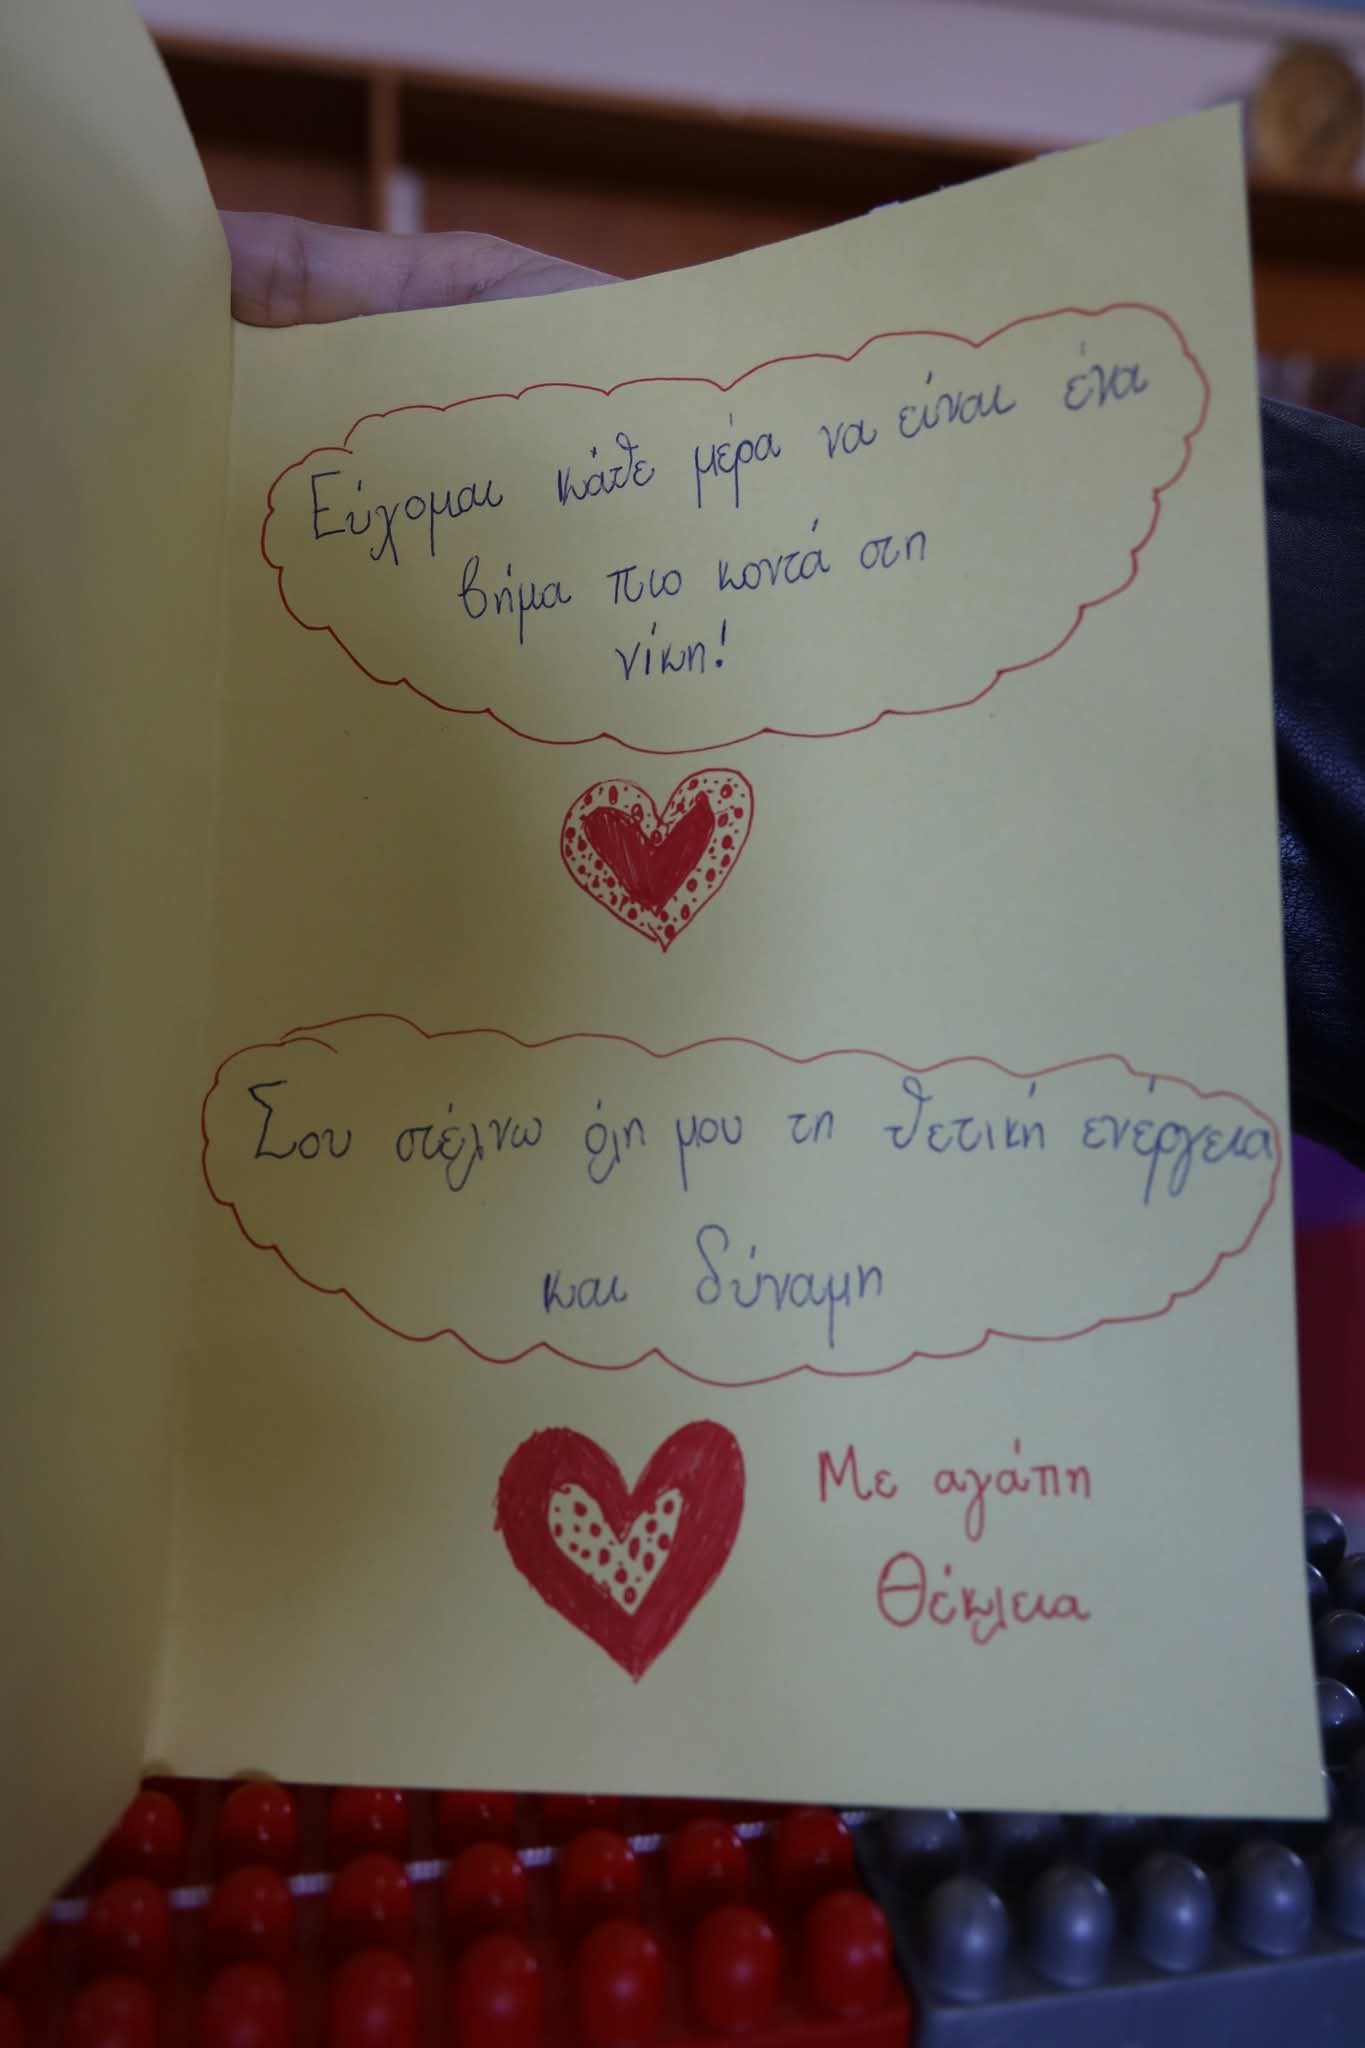 Εύχομαι κάθε μέρα να είναι ένα
βήμα πιο κοντά στη
νίκη!
Σου στέλνω όλη μου τη θετική ενέργεια
και δύναμη
Με αγάπη
Θέκλεια